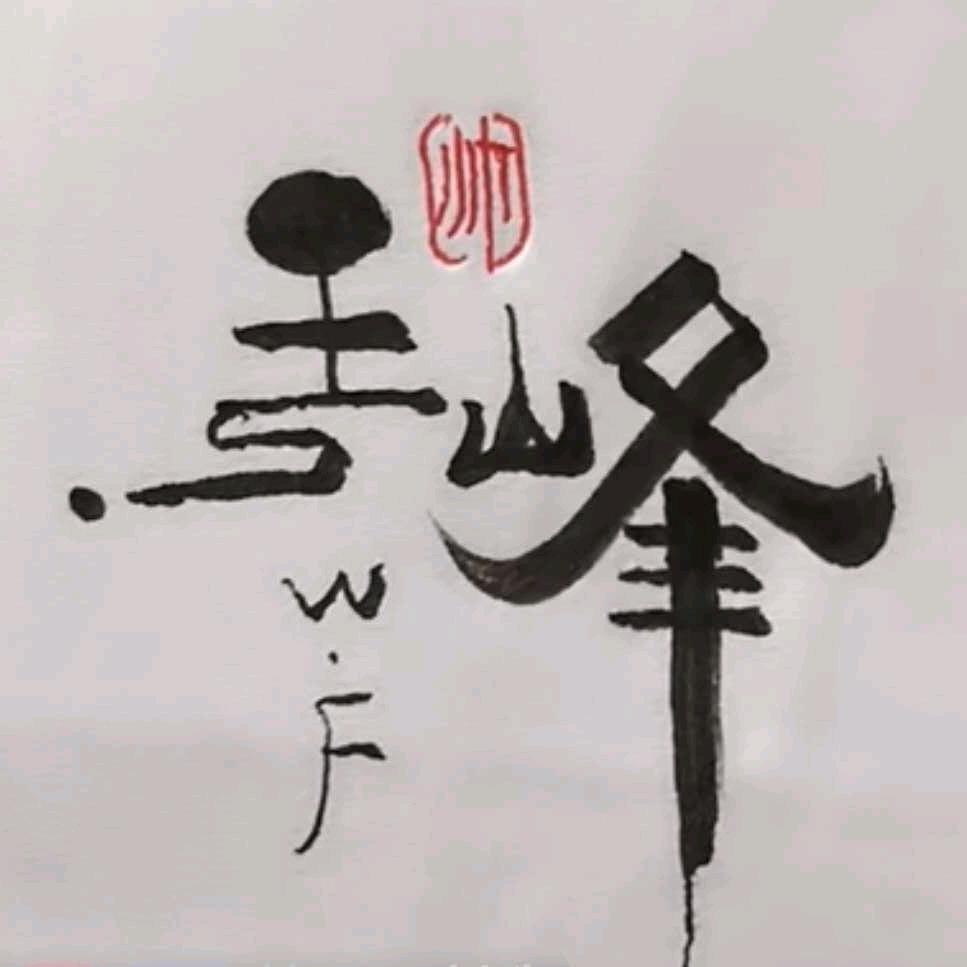 王峰
W.F